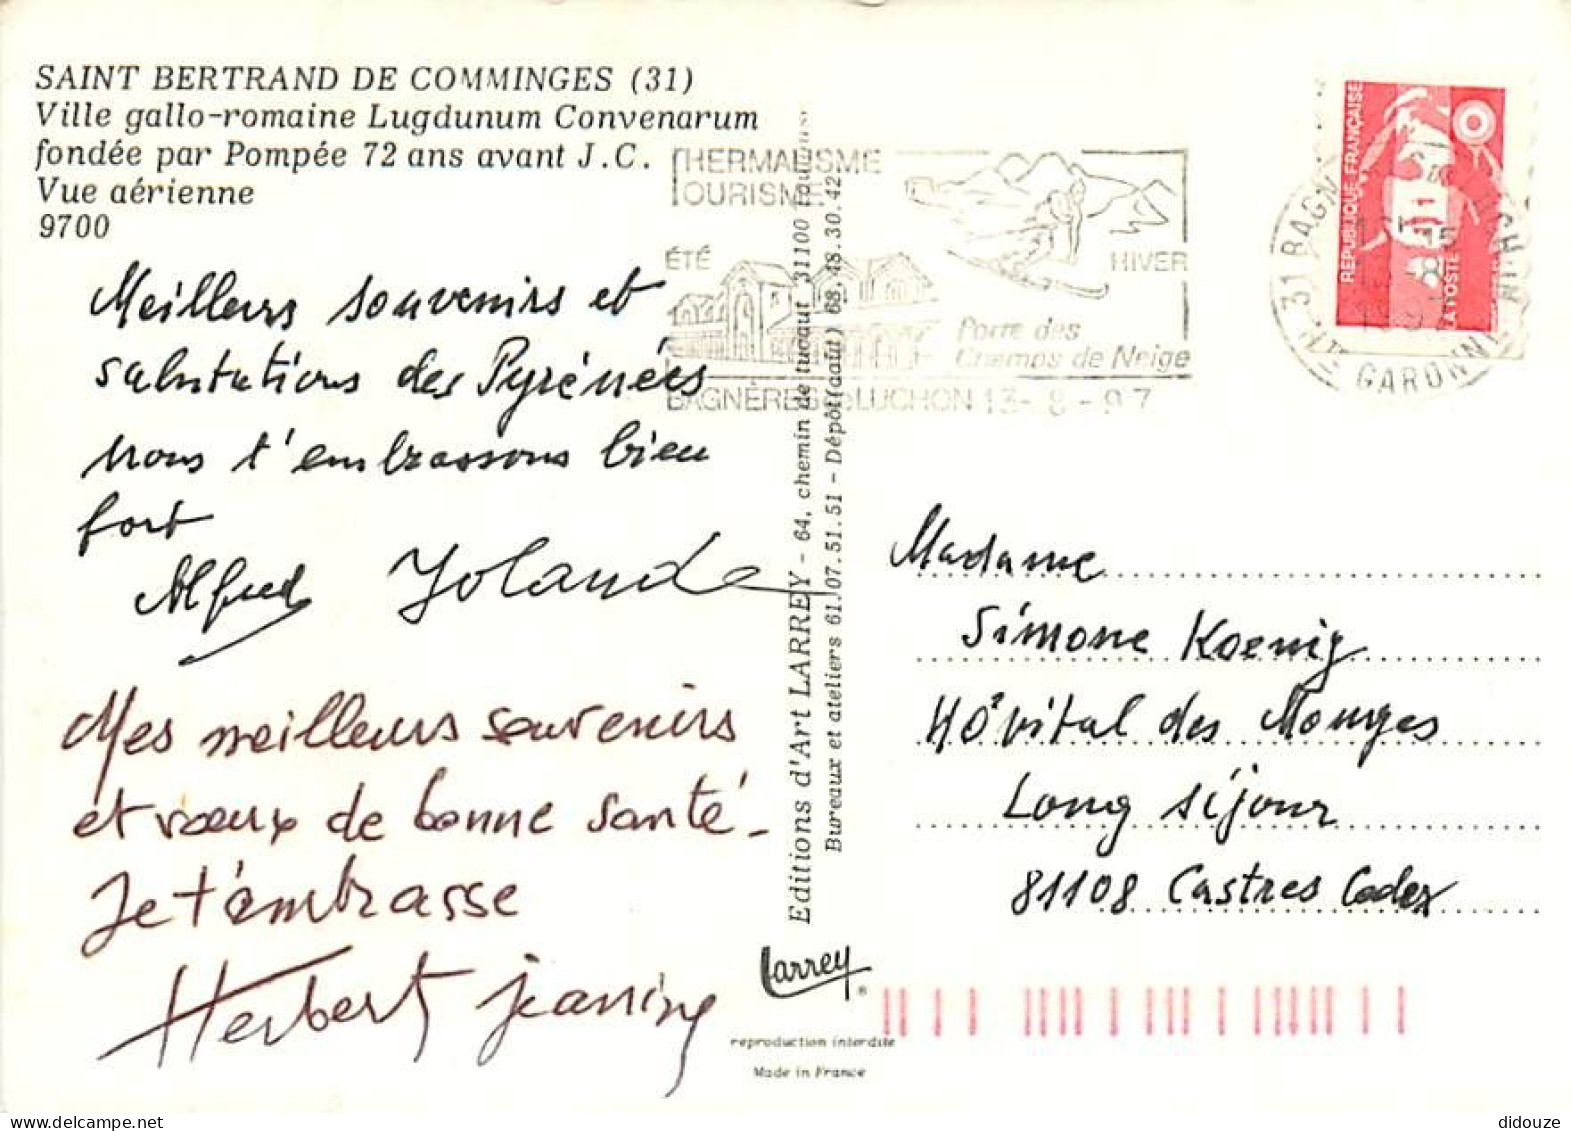 SAINT BERTRAND DE COMMINGES (31)
Ville gallo-romaine Lugdunum Convenarum
fondée par Pompée 72 ans avant J.C.
Vue aérienne
9700
Meilleurs souvenirs et
salutations des Pyrénées
nous t'embrassons bien
fort
Alfred Yolande
Mes meilleurs souvenirs
et vœux de bonne santé -
Je t'embrasse
Herbert Jeanine
THERMALISME
TOURISME
ÉTÉ
HIVER
Porte des
Champs de Neige
BAGNÈRES de LUCHON 13-8-97
RÉPUBLIQUE FRANÇAISE
LA POSTE
31 BAGN
Nte GARONNE
Editions d'Art LARREY - 64, chemin de tucaut 31100
Bureaux et ateliers 61.07.51.51 - Dépôt (août) 68.48.30.42
Madame
Simone Koenig
Hôpital des Mourges
Long séjour
81108 Castres Cedex
Larrey
®
reproduction interdite
Made in France
didouze